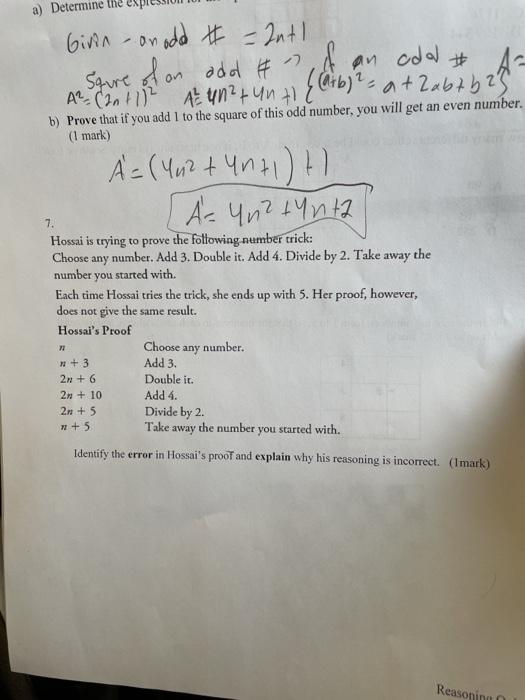 a) Determine the expression
Givin - an odd # = 2n+1
Squre of an odd # -> if an odd # A=
A²=(2n+1)² A²=4n²+4n+1 {(a+b)²=a+2ab+b²}
b) Prove that if you add 1 to the square of this odd number, you will get an even number.
(1 mark)
A'=(4n²+4n+1)+1
A'=4n²+4n+2
7.
Hossai is trying to prove the following number trick:
Choose any number. Add 3. Double it. Add 4. Divide by 2. Take away the
number you started with.
Each time Hossai tries the trick, she ends up with 5. Her proof, however,
does not give the same result.
Hossai's Proof
n Choose any number.
n + 3 Add 3.
2n + 6 Double it.
2n + 10 Add 4.
2n + 5 Divide by 2.
n + 5 Take away the number you started with.
Identify the error in Hossai's proof and explain why his reasoning is incorrect. (1mark)
Reasoning